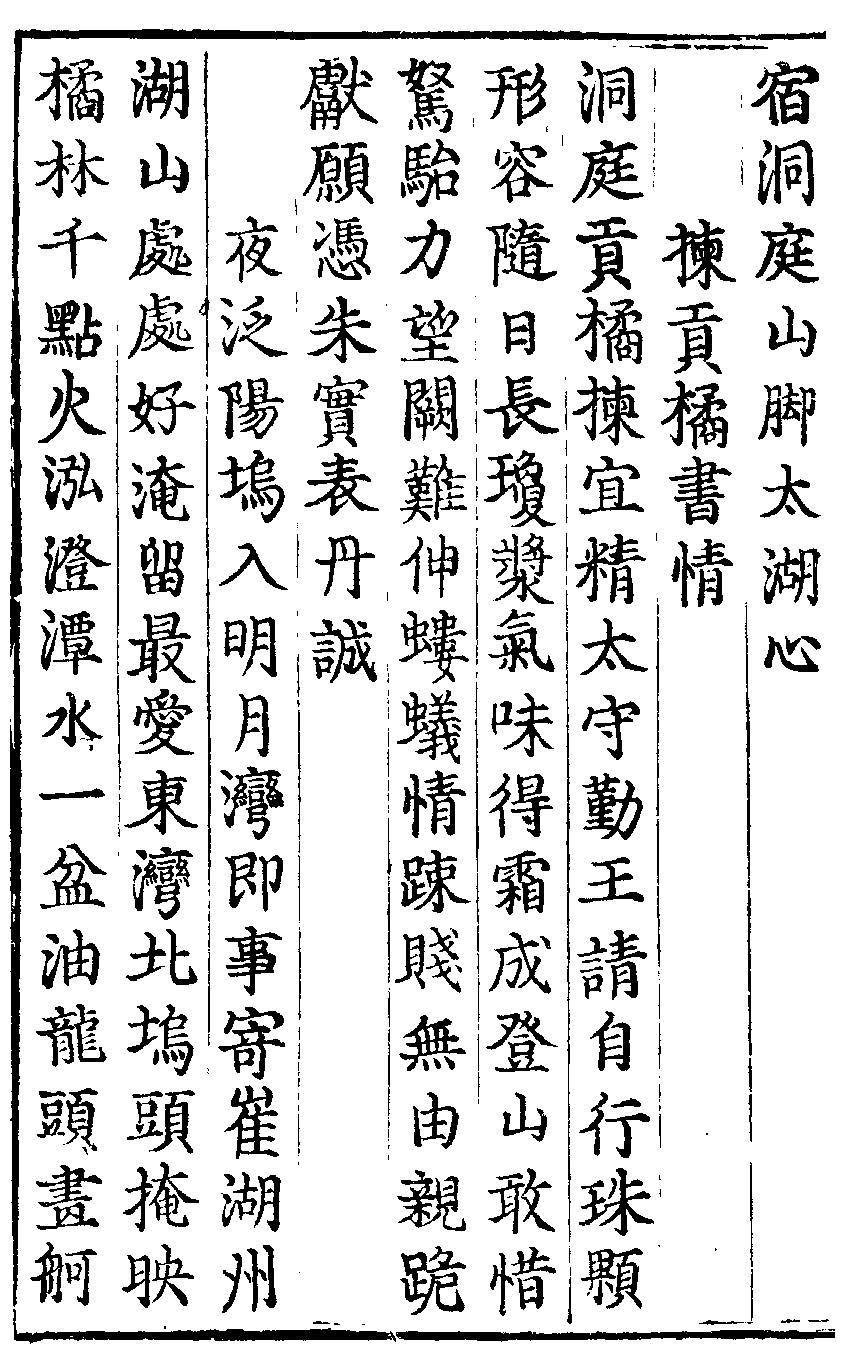 宿洞庭山脚太湖心
揀貢橘書情
洞庭貢橘揀宜精太守勤王請自行珠顆
形容隨日長瓊漿氣味得霜成登山敢惜
駑駘力望闕難伸螻蟻情踈賤無由親跪
獻願憑朱實表丹誠
夜泛陽塢入明月灣即事寄崔湖州
湖山處處好淹留最愛東灣北塢頭掩映
橘林千點火泓澄潭水一盆油龍頭畫舸